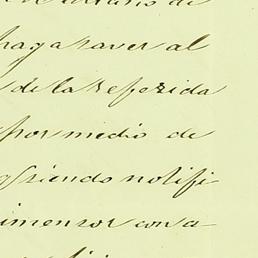 de
haga saver al
de la referida
por medio de
siendo notifi
imensor con a